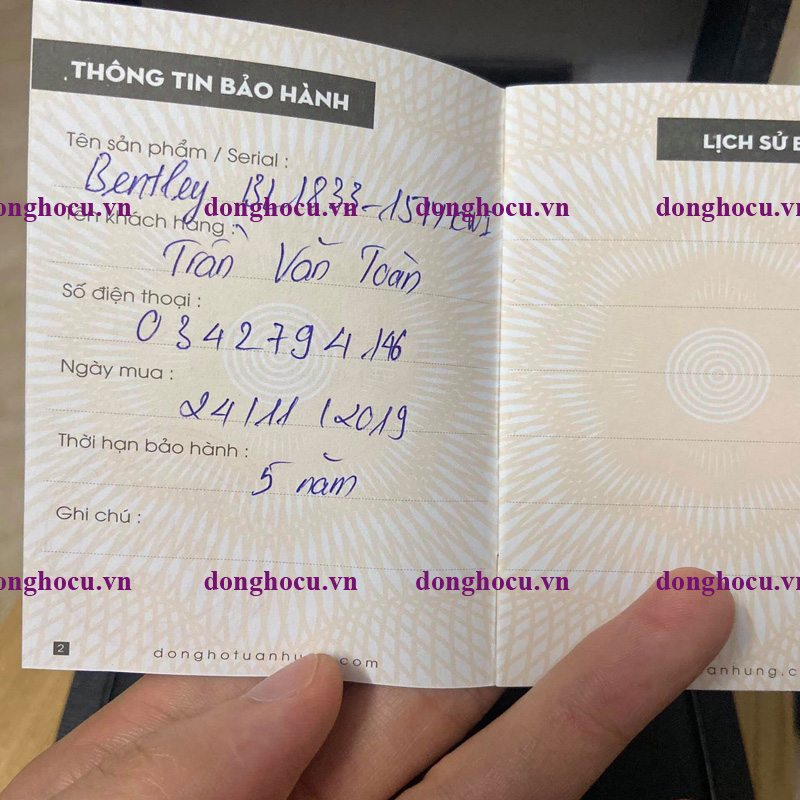 THÔNG TIN BẢO HÀNH
Tên sản phẩm / Serial :
Bentley BL1833-
donghocu.vn donghocu.vn donghocu.vn donghocu.vn
Tên khách hàng :
Trần Văn Toàn
Số điện thoại :
0342794146
Ngày mua :
24/11/2019
Thời hạn bảo hành :
5 năm
Ghi chú :
donghocu.vn donghocu.vn donghocu.vn donghocu.vn
2
LỊCH SỬ